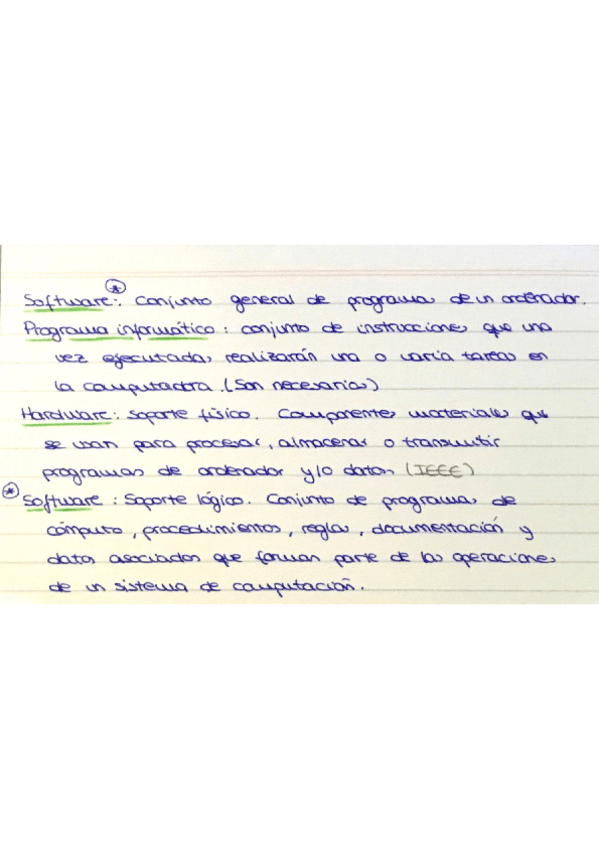 Software*: Conjunto general de programas de un ordenador.
Programa informático: conjunto de instrucciones que una
vez ejecutadas realizarán una o varias tareas en
la computadora. (Son necesarios)
Hardware: Soporte físico. Componentes materiales que
se usan para procesar, almacenar o transmitir
programas de ordenador y/o datos (IEEE)
* Software: Soporte lógico. Conjunto de programas de
cómputo, procedimientos, reglas, documentación y
datos asociados que forman parte de las operaciones
de un sistema de computación.